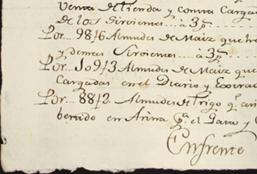 Venta de Tienda y Contra Cargad
de los Sirvienes..... a 3p
Por.. 9816 Almudes de Maiz que
y demas Sirvienes.... a 3p
Por.. 10913 Almudes de Maiz que
Cargadas en el Diario y
Por.. 8812 Almudes de Trigo q.
en Arina q.e el Gasto y
Enfrente